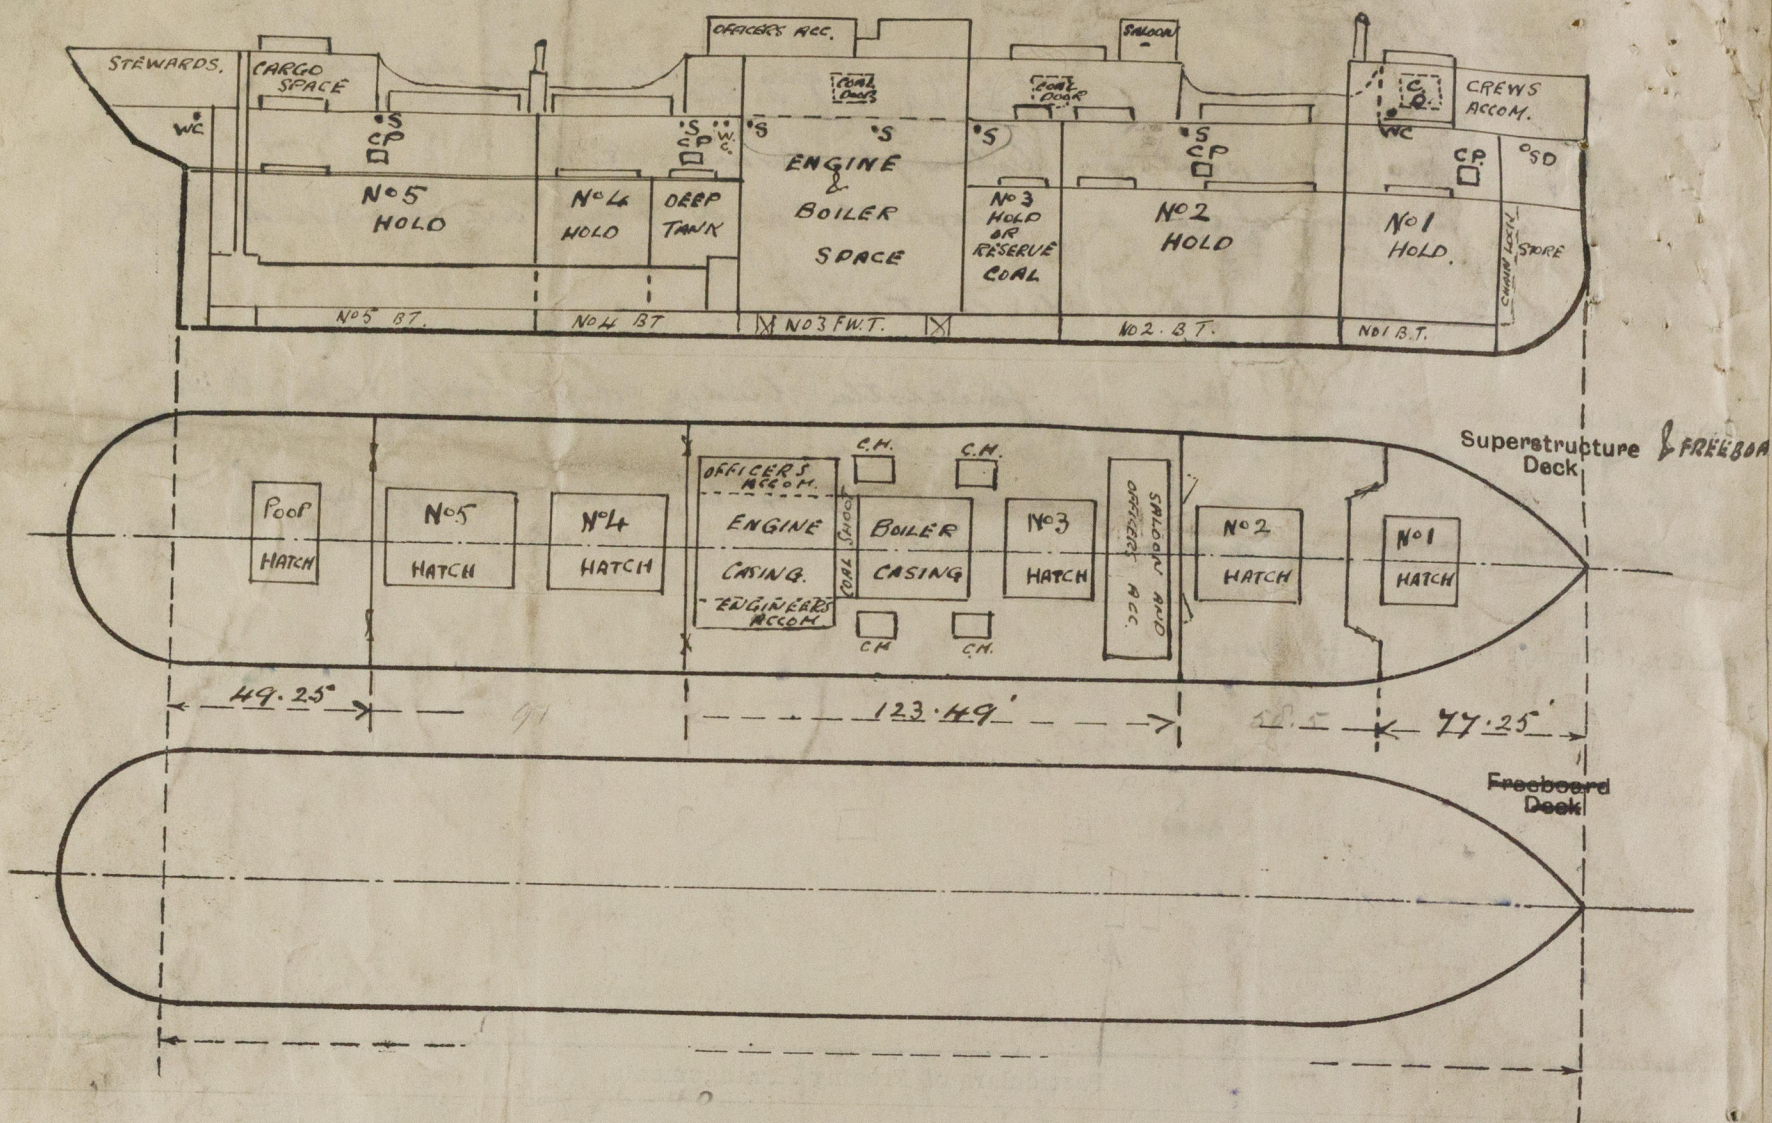 OFFICERS ACC.
SALOON
STEWARDS.
CARGO
SPACE
COAL
DOOR
COAL
DOOR
C
D.
CREWS
ACCOM.
WC
S
CP
S
CP
W.
C.
S
S
S
S
CP
WC
CP.
SD
No5
HOLD
No4
HOLD
DEEP
TANK
ENGINE
&
BOILER
SPACE
No3
HOLD
OR
RESERVE
COAL
No2
HOLD
No1
HOLD.
CHAIN LOCK.
STORE
No5 BT.
No4 BT
No3 F.W.T.
No2. B.T.
No1 B.T.
Superstructure & FREEBOA
Deck
POOP
HATCH
No5
HATCH
No4
HATCH
OFFICERS
ACCOM.
ENGINE
CASING.
ENGINEERS
ACCOM
COAL SHOOT
C.H.
C.H.
BOILER
CASING
C.H
C.H.
No3
HATCH
SALOON AND
OFFICERS ACC.
No2
HATCH
No1
HATCH
49.25'
123.49'
58.5
77.25'
Freeboard
Deck